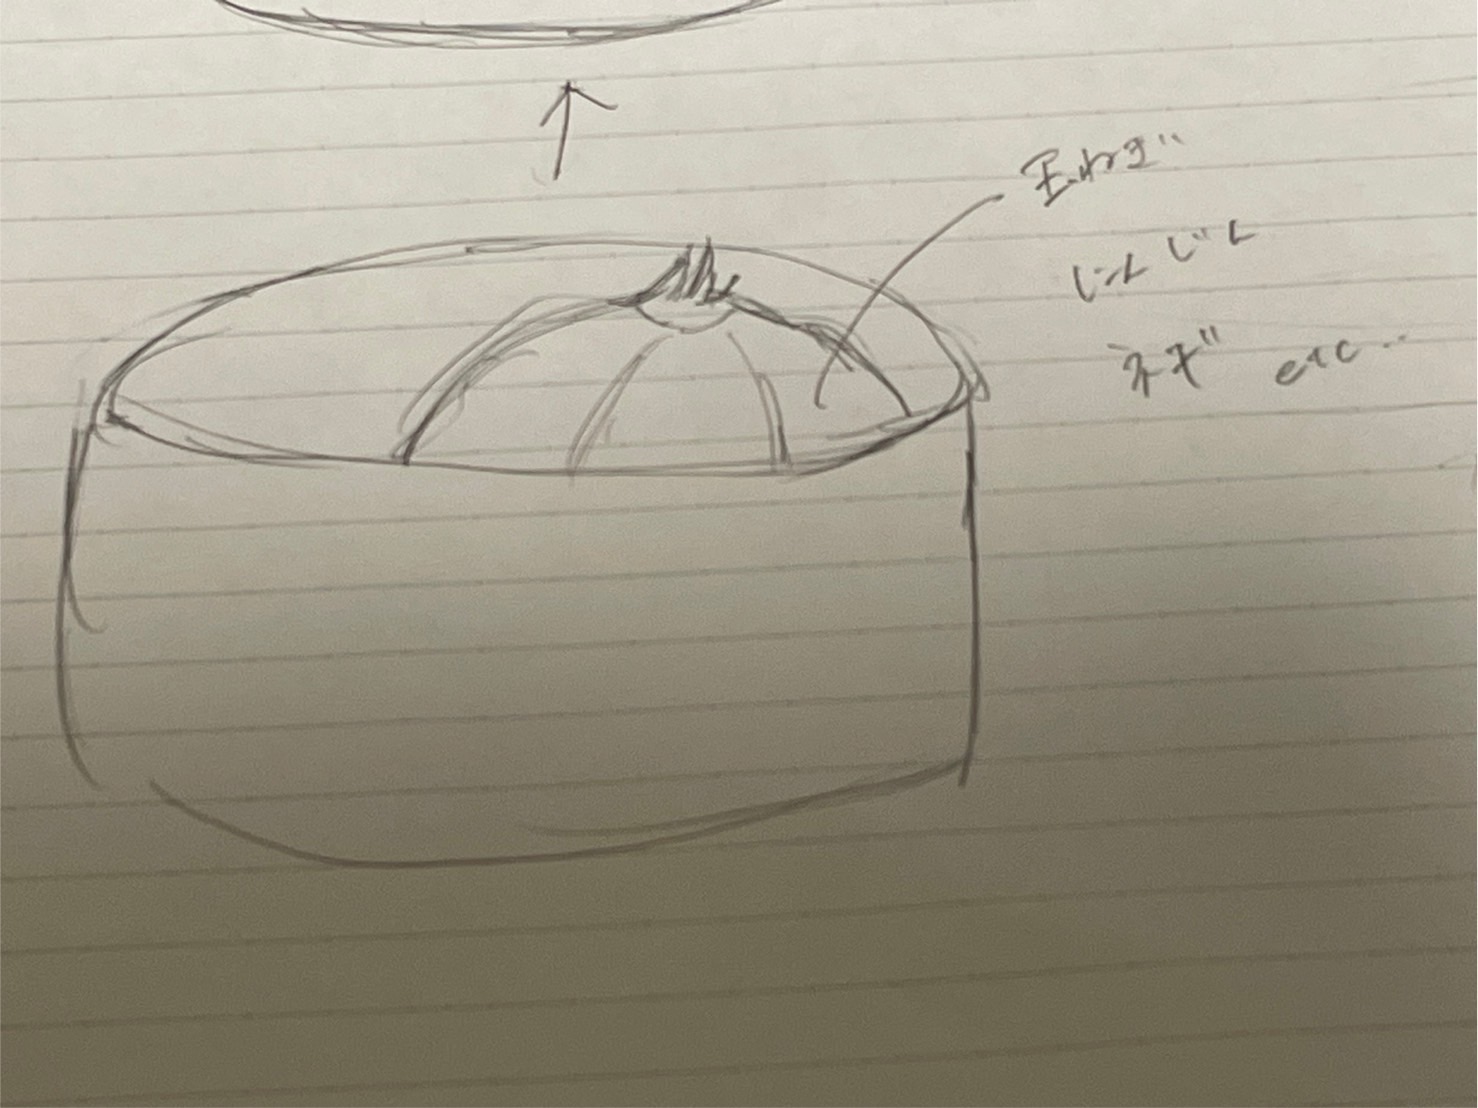 玉ねぎ
にんじん
ネギ etc..